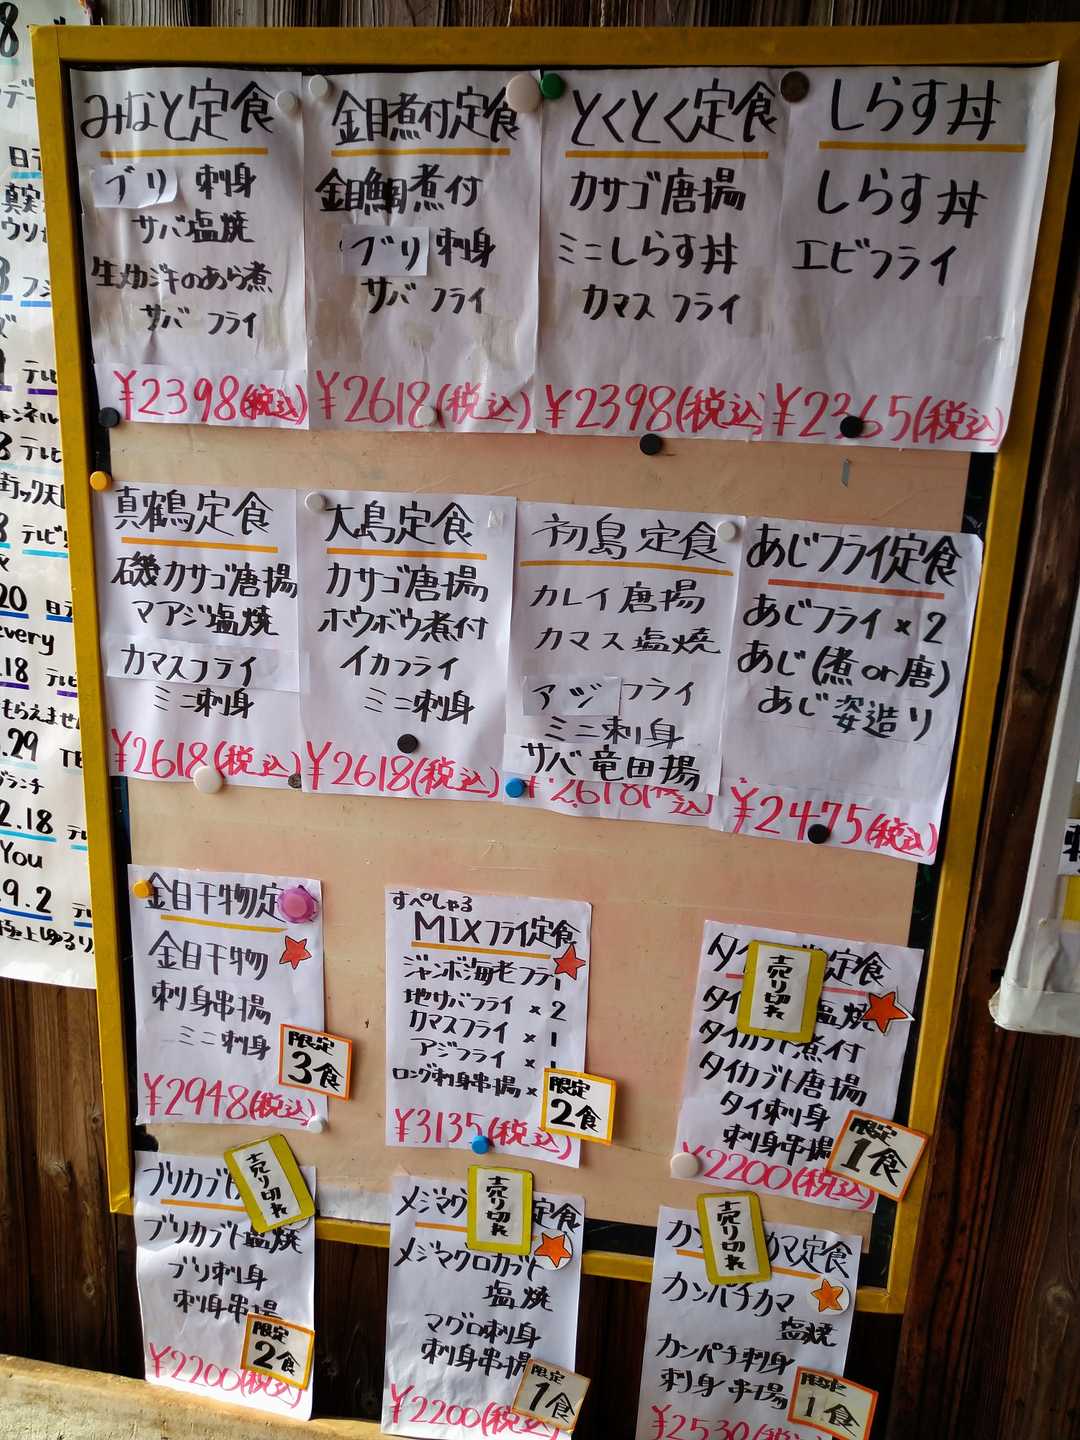 みなと定食
ブリ 刺身
サバ塩焼
生メカジキのあら煮
サバ フライ
¥2398(税込)
金目煮付定食
金目鯛煮付
ブリ 刺身
サバ フライ
¥2618(税込)
とくとく定食
カサゴ唐揚
ミニしらす丼
カマス フライ
¥2398(税込)
しらす丼
しらす丼
エビフライ
¥2365(税込)
真鶴定食
磯カサゴ唐揚
マアジ塩焼
カマスフライ
ミニ刺身
¥2618(税込)
大島定食
カサゴ唐揚
ホウボウ煮付
イカフライ
ミニ刺身
¥2618(税込)
初島定食
カレイ唐揚
カマス塩焼
アジフライ
ミニ刺身
サバ竜田揚
¥2618(税込)
あじフライ定食
あじフライ×2
あじ(煮or唐)
あじ姿造り
¥2475(税込)
金目干物定
金目干物
刺身串揚
ミニ刺身
限定
3食
¥2948(税込)
すぺしゃる
MIXフライ定食
ジャンボ海老フライ
地サバフライ×2
カマスフライ×1
アジフライ×1
ロング刺身串揚×
限定
2食
¥3135(税込)
タイ 定食
売り切れ
タイ 塩焼
タイカブト煮付
タイカブト唐揚
タイ刺身
刺身串揚
限定
1食
¥2200(税込)
ブリカブト
売り切れ
ブリカブト塩焼
ブリ刺身
刺身串揚
限定
2食
¥2200(税込)
メジマグ 定食
売り切れ
メジマグロカブト
塩焼
マグロ刺身
刺身串揚
限定
1食
¥2200(税込)
カン カマ定食
売り切れ
カンパチカマ
塩焼
カンパチ刺身
刺身串揚
限定
1食
¥2530(税込)